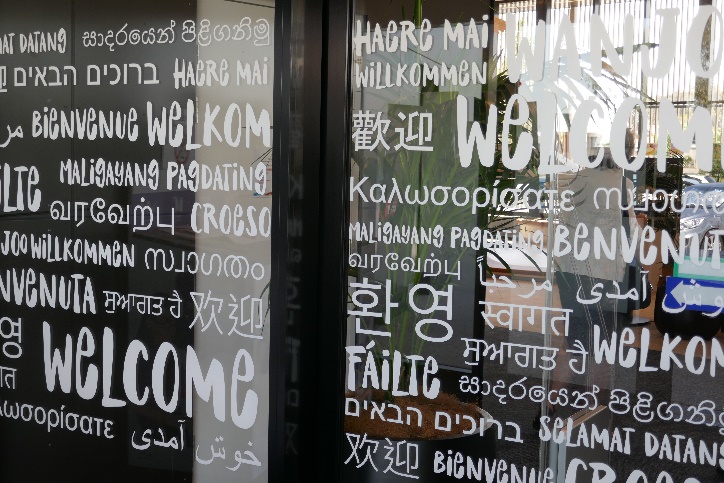 AT DATANG සාදරයෙන් පිළිගනිමු
ברוכים הבאים HAERE MAI
BIENVENUE WELKOM
FÁILTE MALIGAYANG PAGDATING
வரவேற்பு CROESO
WILLKOMMEN സ്വാഗതം
NVENUTA ਸੁਆਗਤ ਹੈ 欢迎
영 WELCOME
λωσορίσατε خوش آمدی
HAERE MAI WANJO
WILLKOMMEN
歡迎 WELCOME
Καλωσορίσατε സ്വാഗതം
MALIGAYANG PAGDATING BENVENUT
வரவேற்பு مرحباً خوش آمدی
환영 स्वागत
ਸੁਆਗਤ ਹੈ WELKOM
FÁILTE සාදරයෙන් පිළිගනිමු
ברוכים הבאים SELAMAT DATANG
欢迎 BIENVENUE CROES